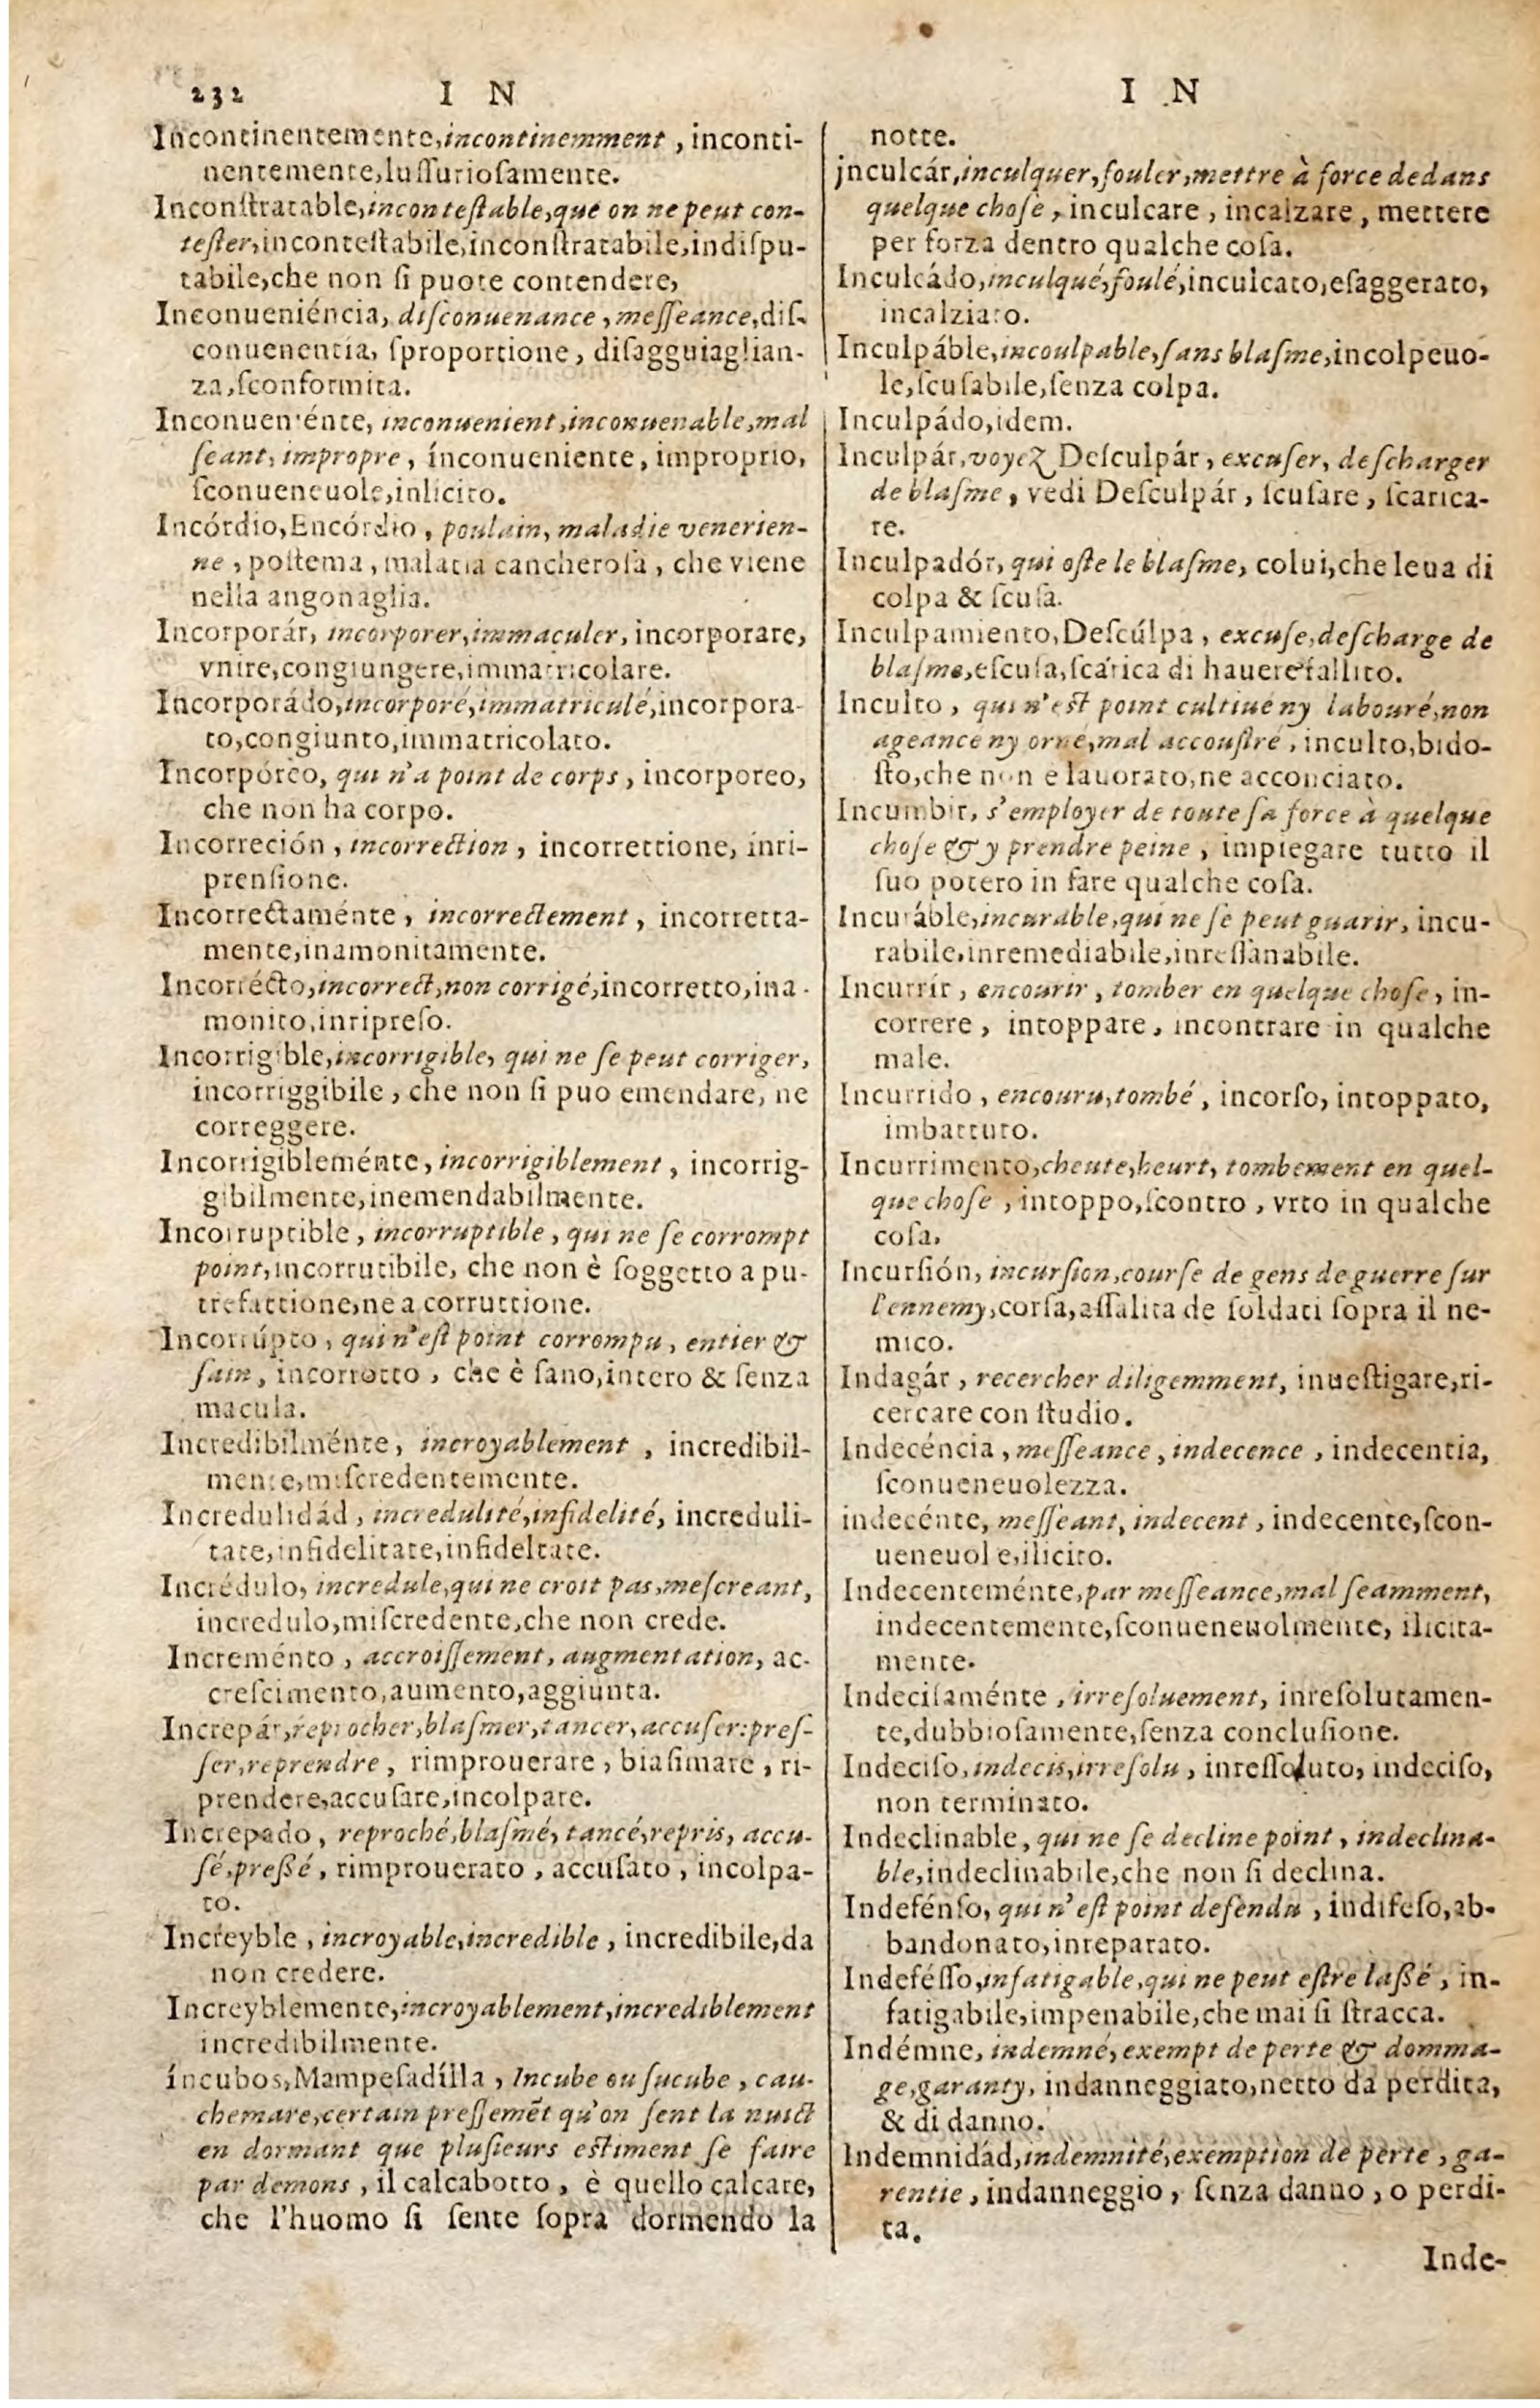 232 I N
Incontinentemente,incontinemment , inconti-
nentemente,luſſurioſamente.
Inconſtratable,inconteſtable,que on ne peut con-
teſter,inconteſtabile,inconſtratabile,indiſpu-
tabile,che non ſi puote contendere,
Inconueniéncia, diſconuenance , meſſeance,diſ-
conuenentia, ſproportione, diſagguiaglian-
za,ſconformita.
Inconueniénte, inconuenient,inconuenable,mal
ſeant, impropre , ínconueniente, improprio,
ſconueneuole,inlicito.
Incórdio,Encórdio , poulain, maladie venerien-
ne , poſtema , malatia cancheroſa , che viene
nella angonaglia.
Incorporár, incorporer,immaculer, incorporare,
vnire,congiungere,immatricolare.
Incorporádo,incorporé,immatriculé,incorpora-
to,congiunto,immatricolato.
Incorpóreo, qui n'a point de corps , incorporeo,
che non ha corpo.
Incorreción , incorrection , incorrettione, inri-
prenſione.
Incorrectaménte , incorrectement , incorretta-
mente,inamonitamente.
Incorrécto,incorrect,non corrigé,incorretto,ina-
monito,inripreſo.
Incorrigible,incorrigible, qui ne ſe peut corriger,
incorriggibile , che non ſi puo emendare, ne
correggere.
Incorrigibleménte, incorrigiblement , incorrig-
gibilmente,inemendabilmente.
Incorruptible , incorruptible , qui ne ſe corrompt
point,incorrutibile, che non è ſoggetto a pu-
trefattione,ne a corruttione.
Incorrúpto , qui n'eſt point corrompu , entier &
ſain, incorrotto , che è ſano,intero & ſenza
macula.
Incredibilménte, incroyablement , incredibil-
mente,miſcredentemente.
Incredulidád , incredulité,infidelité, increduli-
tate,infidelitate,infideltate.
Incrédulo, incredule,qui ne croit pas,meſcreant,
incredulo,miſcredente,che non crede.
Increménto , accroiſſement, augmentation, ac-
creſcimento,aumento,aggiunta.
Increpár,reprocher,blaſmer,tancer,accuſer:preſ-
ſer,reprendre , rimprouerare , biaſimare , ri-
prendere,accuſare,incolpare.
Increpado , reproché,blaſmé, tancé,repris, accu-
ſé,preßé , rimprouerato , accuſato , incolpa-
to.
Increyble , incroyable,incredible , incredibile,da
non credere.
Increyblemente,incroyablement,incrediblement
incredibilmente.
íncubos,Mampeſadílla , Incube ou ſucube , cau-
chemare,certain preſſemẽt qu'on ſent la nuict
en dormant que pluſieurs eſtiment ſe faire
par demons , il calcabotto , è quello calcare,
che l'huomo ſi ſente ſopra dormendo la
I N
notte.
jnculcár,inculquer,fouler,mettre à force dedans
quelque choſe , inculcare , incalzare , mettere
per forza dentro qualche coſa.
Inculcádo,inculqué,foulé,inculcato,eſaggerato,
incalziato.
Inculpáble,incoulpable,ſans blaſme,incolpeuo-
le,ſcuſabile,ſenza colpa.
Inculpádo,idem.
Inculpár,voyez Deſculpár , excuſer, deſcharger
de blaſme , vedi Deſculpár , ſcuſare , ſcarica-
re.
Inculpadór, qui oſte le blaſme, colui,che leua di
colpa & ſcuſa.
Inculpamiento,Deſcúlpa , excuſe,deſcharge de
blaſme,eſcuſa,ſcarica di hauere fallito.
Inculto , qui n'est point cultiué ny labouré,non
ageancé ny orné,mal accouſtré , inculto,bido-
ſto,che non e lauorato,ne acconciato.
Incumbir, s'employer de toute ſa force à quelque
choſe & y prendre peine , impiegare tutto il
ſuo potero in fare qualche coſa.
Incuráble,incurable,qui ne ſe peut guarir, incu-
rabile,inremediabile,inreſſanabile.
Incurrir , encourir , tomber en quelque choſe , in-
correre , intoppare , incontrare in qualche
male.
Incurrido , encouru,tombé , incorſo, intoppato,
imbattuto.
Incurrimento,cheute,heurt, tombement en quel-
que choſe , intoppo,ſcontro , vrto in qualche
coſa.
Incurſión, incurſion,courſe de gens de guerre ſur
l'ennemy,corſa,aſſalita de ſoldati ſopra il ne-
mico.
Indagár , recercher diligemment, inueſtigare,ri-
cercare con ſtudio.
Indecéncia , meſſeance , indecence , indecentia,
ſconueneuolezza.
indecénte, meſſeant, indecent , indecente,ſcon-
ueneuole,ilicito.
Indecenteménte,par meſſeance,mal ſeamment,
indecentemente,ſconueneuolmente, ilicita-
mente.
Indeciſaménte , irreſoluement, inreſolutamen-
te,dubbioſamente,ſenza concluſione.
Indeciſo,indecis,irreſolu , inreſſoluto, indeciſo,
non terminato.
Indeclinable, qui ne ſe decline point , indeclina-
ble,indeclinabile,che non ſi declina.
Indefénſo, qui n'eſt point defendu , indifeſo,ab-
bandonato,inreparato.
Indeféſſo,infatigable,qui ne peut eſtre laßé , in-
fatigabile,impenabile,che mai ſi ſtracca.
Indémne, indemné, exempt de perte & domma-
ge,garanty, indanneggiato,netto da perdita,
& di danno.
Indemnidád,indemnité,exemption de perte , ga-
rentie , indanneggio , ſenza danno , o perdi-
ta.
Inde-